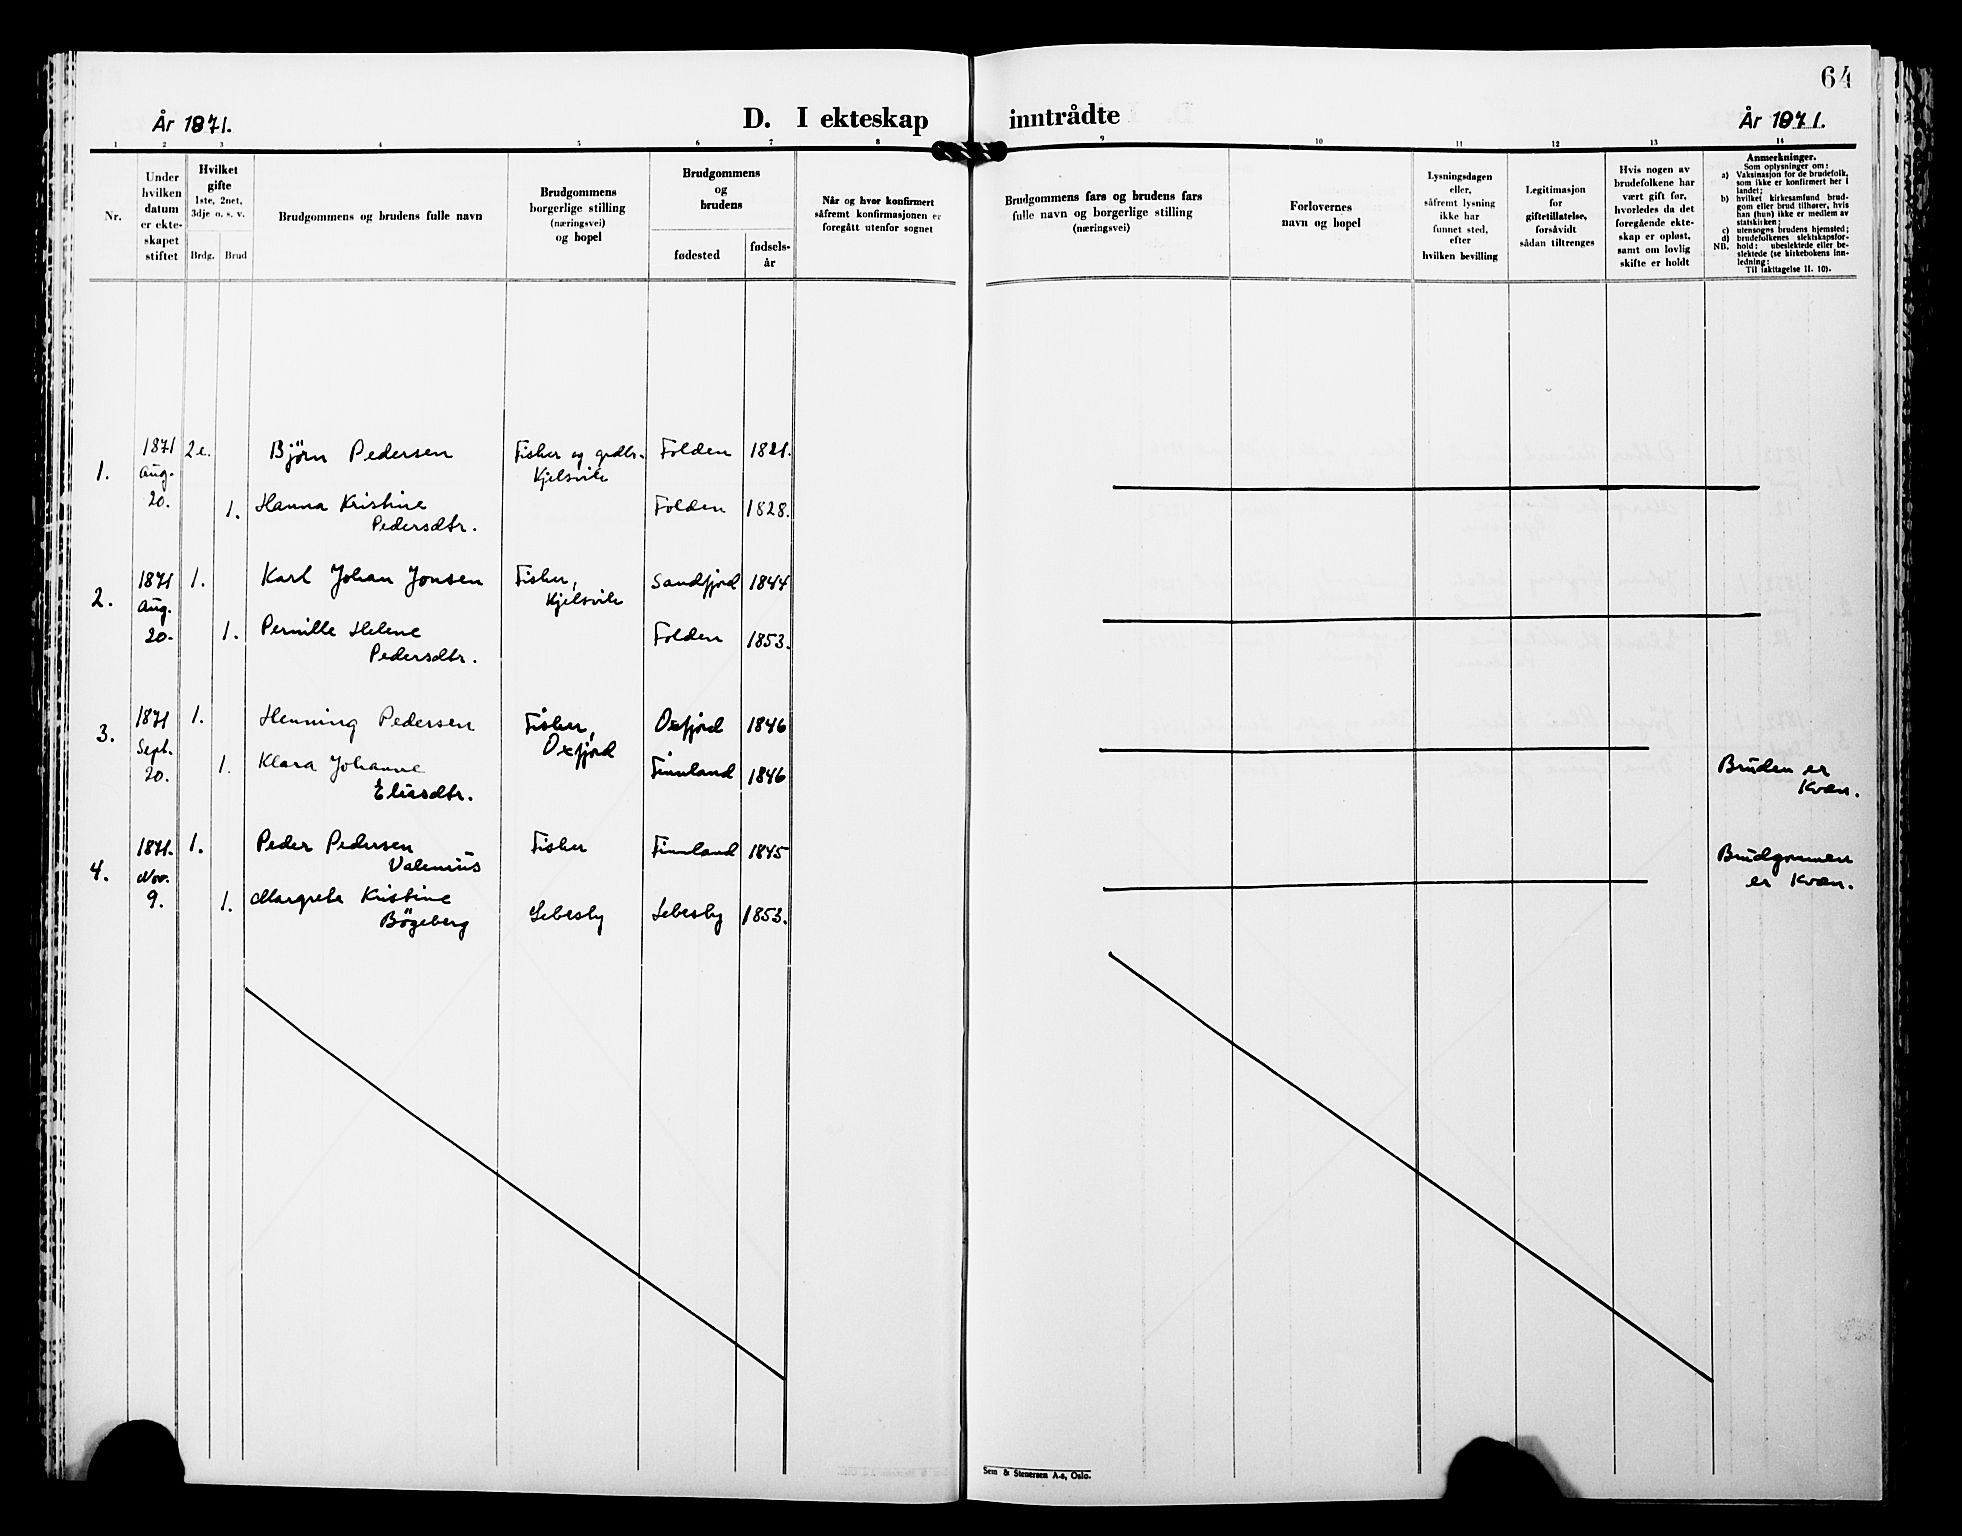 64
År 1871.
D. I ekteskap inntrådte
År 1871.
1 2 3 4 5 6 7 8 9 10 11 12 13 14
Nr.
Under
hvilken
datum
er ekte-
skapet
stiftet
Hvilket
gifte
1ste, 2net,
3dje o. s. v.
Brdg. Brud
Brudgommens og brudens fulle navn
Brudgommens
borgerlige stilling
(næringsvei)
og bopel
Brudgommens
og
brudens
fødested
fødsels-
år
Når og hvor konfirmert
såfremt konfirmasjonen er
foregått utenfor sognet
Brudgommens fars og brudens fars
fulle navn og borgerlige stilling
(næringsvei)
Forlovernes
navn og bopel
Lysningsdagen
eller,
såfremt lysning
ikke har
funnet sted,
efter
hvilken bevilling
Legitimasjon
for
giftetillatelse,
forsåvidt
sådan tiltrenges
Hvis nogen av
brudefolkene har
vært gift før,
hvorledes da det
foregående ekte-
skap er opløst,
samt om lovlig
skifte er holdt
Anmerkninger.
Som oplysninger om:
a) Vaksinasjon for de brudefolk,
som ikke er konfirmert her i
landet;
b) hvilket kirkesamfund brud-
gom eller brud tilhører, hvis
han (hun) ikke er medlem av
statskirken;
c) utensogns brudens hjemsted;
d) brudefolkenes slektskapsfor-
NB. hold: ubeslektede eller be-
slektede (se kirkebokens inn-
ledning:
Til iakttagelse II. 10).
1. 1871 Aug. 20. 2e. Björn Pedersen Fisher og grdbr. Kjelsvik Folden 1821.
1. Hanna Kristine Pedersdtr. Folden 1828.
2. 1871 Aug. 20. 1. Karl Johan Jonsen Fisher, Kjelsvik Sandfjord 1844
1. Pernille Helene Pedersdtr. Folden 1853.
3. 1871 Sept. 20. 1. Henning Pedersen Fisher, Oxfjord Oxfjord 1846
1. Klara Johanne Eliasdtr. Finnland 1846 Bruden er Kvæn.
4. 1871. Nov. 9. 1. Peder Pedersen Valenius Fisher Finnland 1845 Brudgommen er Kvæn.
1. Margrete Kristine Bögeberg Lebesby Lebesby 1853.
Sem & Stenersen A.s, Oslo.